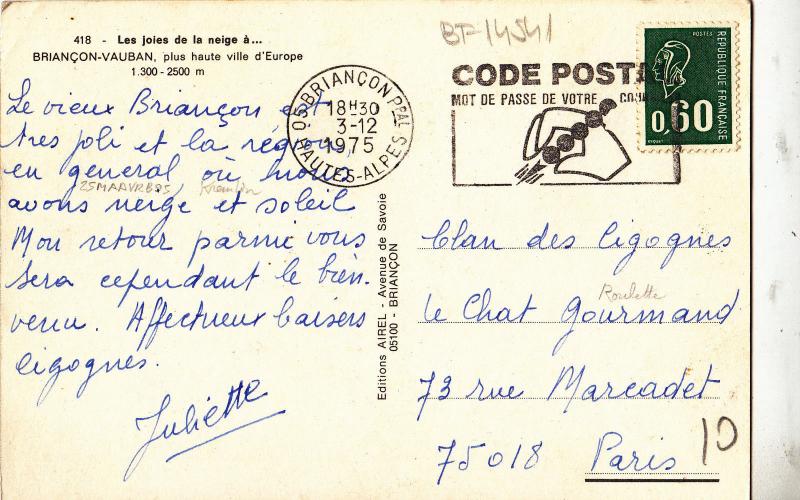 418 - Les joies de la neige à...
BRIANÇON-VAUBAN, plus haute ville d'Europe
1.300 - 2500 m
Le vieux Briançon est
tres joli et la région,
en general où nous
avons neige et soleil
Mon retour parmi vous
sera cependant le bien-
venu. Affectueux baisers
cigognes.
Juliette
25MAAVRB95
BF-14541
05 BRIANÇON PPAL
18H30
3-12
1975
HAUTES-ALPES
CODE POSTAL
MOT DE PASSE DE VOTRE
POSTES
REPUBLIQUE FRANÇAISE
0,60
Editions AIREL - Avenue de Savoie
05100 - BRIANÇON
Clan des Cigognes
Roulette
le Chat Gourmand
73 rue Marcadet
75018 Paris
10